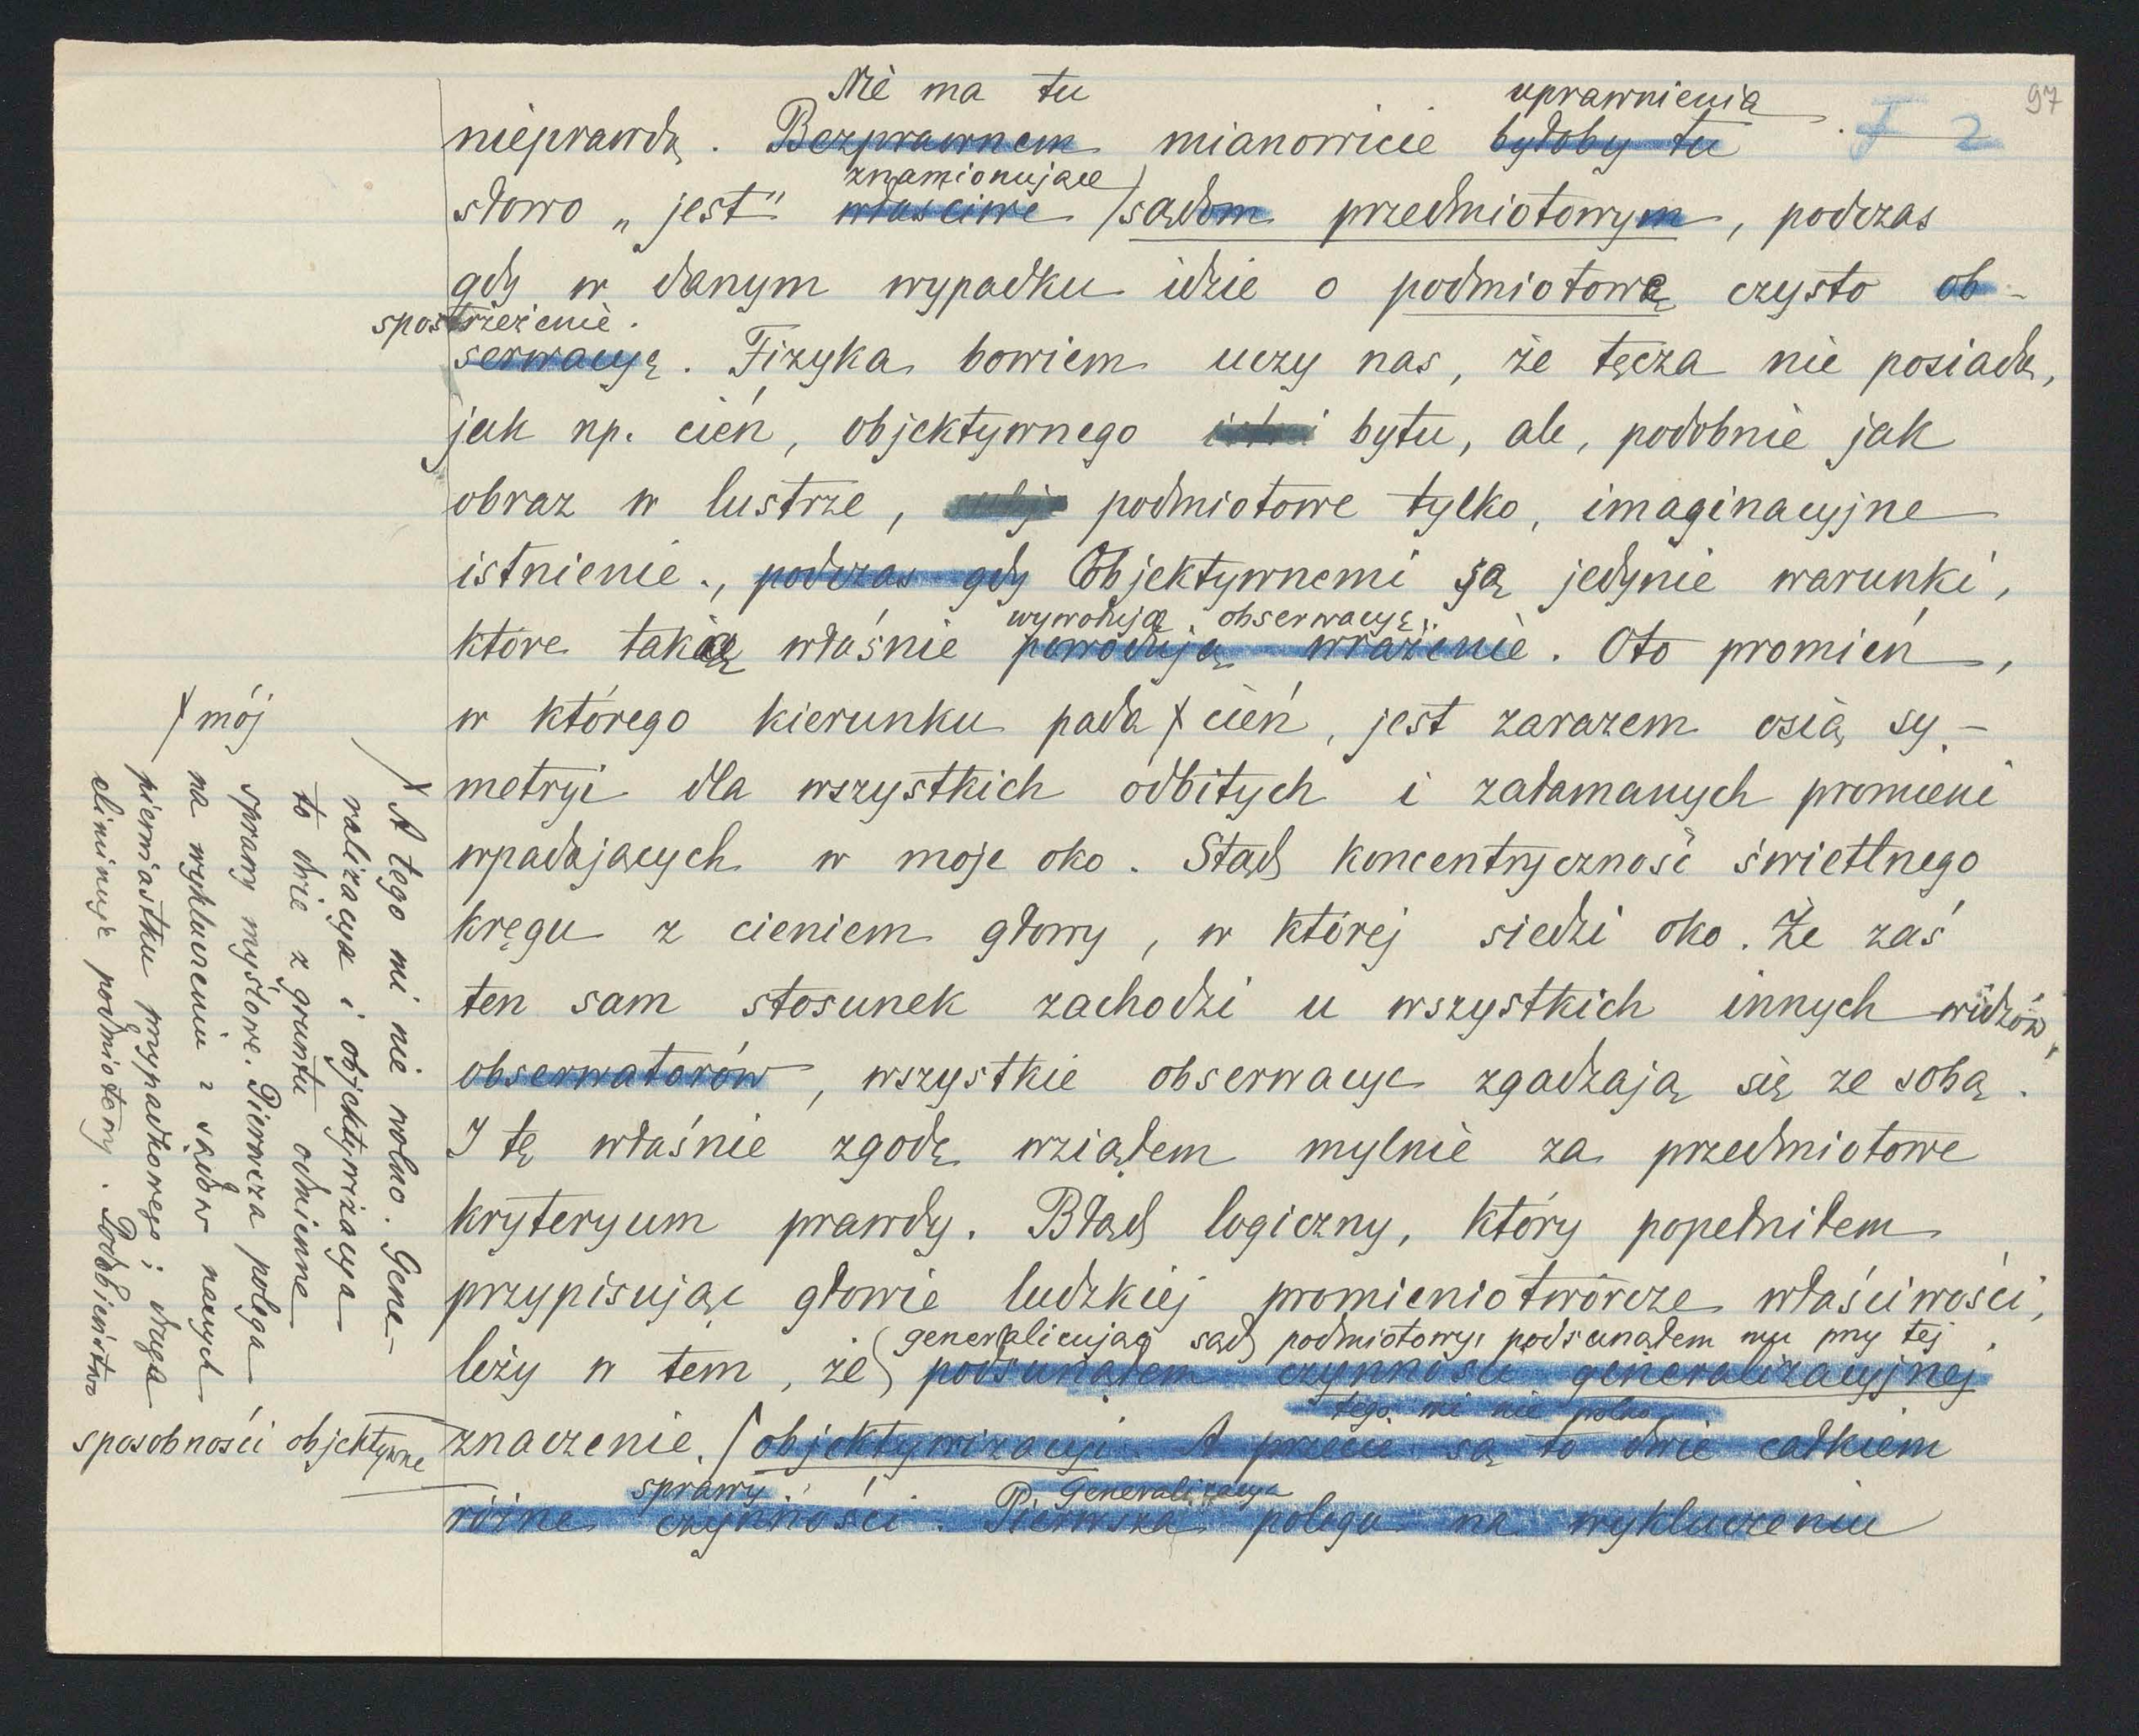 97
F 2
Nie ma tu uprawnienia
nieprawdą. Bezprawnem mianowicie byłoby tu
znamionujące
słowo „jest" właściwe sądom przedmiotowym, podczas
gdy w danym wypadku idzie o podmiotową czysto ob-
spostrzeżenie.
serwacyę. Fizyka bowiem uczy nas, że tęcza nie posiada,
jak np. cień, objektywnego bytu, ale, podobnie jak
obraz w lustrze, podmiotowe tylko, imaginacyjne
istnienie., podczas gdy Objektywnemi są jedynie warunki,
wywołują obserwacyę.
które taką właśnie powodują wrażenie. Oto promień,
w którego kierunku pada cień, jest zarazem osią sy-
metryi dla wszystkich odbitych i załamanych promieni
wpadających w moje oko. Stąd koncentryczność świetlnego
kręgu z cieniem głowy, w której siedzi oko. Że zaś
ten sam stosunek zachodzi u wszystkich innych widzów,
obserwatorów, wszystkie obserwacye zgadzają się ze sobą.
I tę właśnie zgodę wziąłem mylnie za przedmiotowe
kryteryum prawdy. Błąd logiczny, który popełniłem
przypisując głowie ludzkiej promieniotwórcze właściwości,
generalizując sąd podmiotowy, podsunąłem mu przy tej
leży w tem, że podsunąłem czynności generalizacyjnej
tego mi nie wolno
znaczenie. objektywizacyi. A przecie są to dwie całkiem
sprawy Generalizacya
różne czynności. Pierwsza polega na wykluczeniu
mój
A tego mi nie wolno. Gene-
ralizacya i objektywizacya
to dwie z gruntu odmienne
sprawy myślowe. Pierwsza polega
na wykluczeniu z sądów naszych
pierwiastku przypadkowego; druga
eliminuje podmiotowy. Podobieństwo
sposobności objektywne